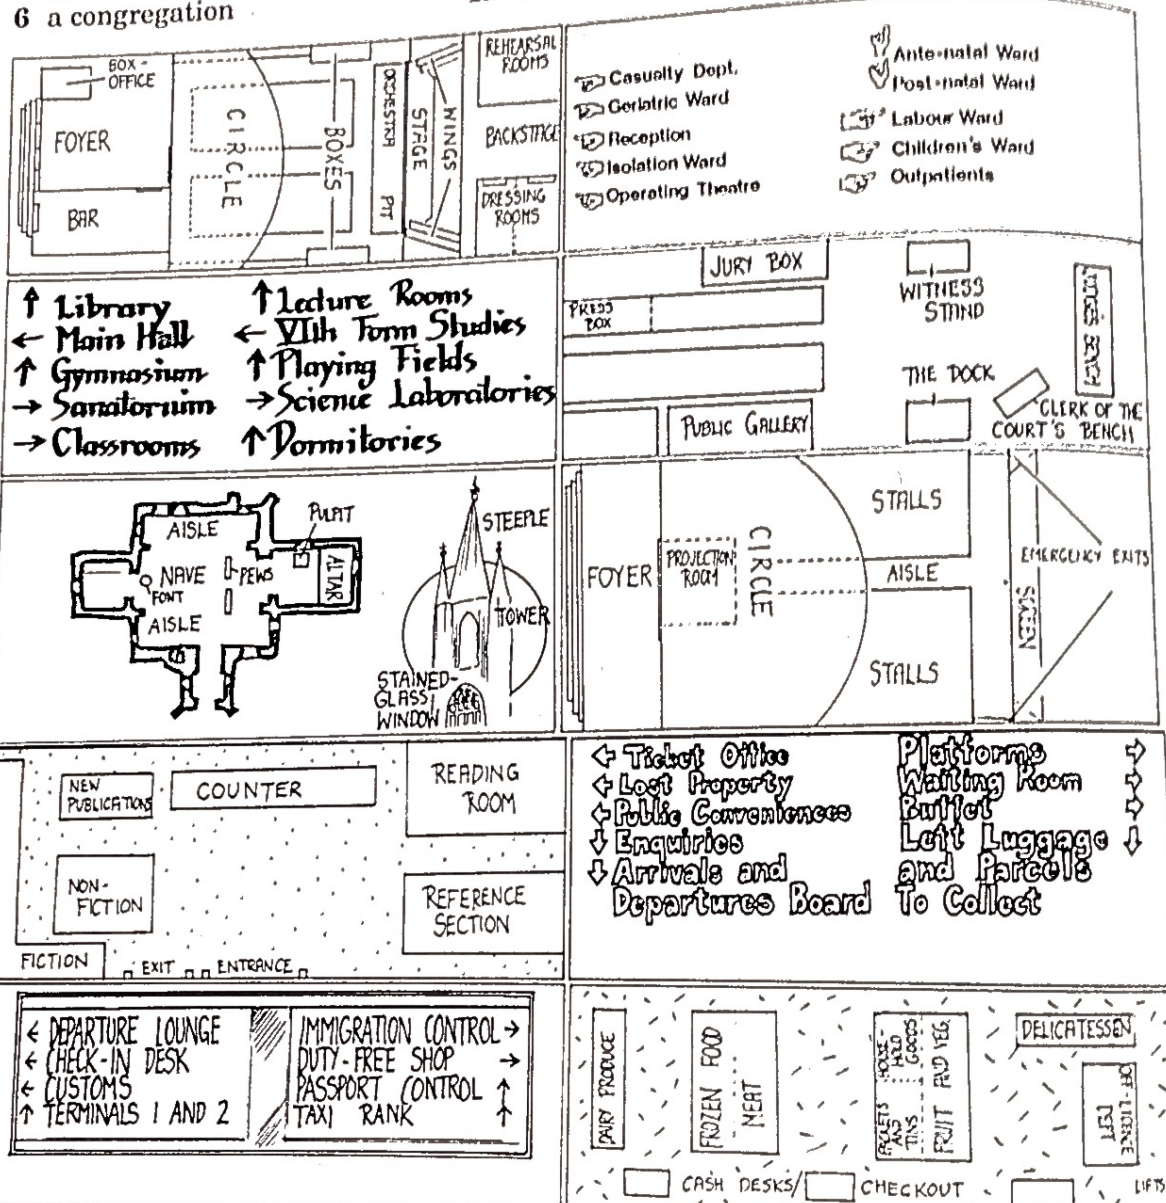 6 a congregation
BOX-
OFFICE
FOYER
BAR
CIRCLE
BOXES
ORCHESTRA PIT
STAGE
WINGS
REHEARSAL
ROOMS
BACKSTAGE
DRESSING
ROOMS
Casualty Dept.
Geriatric Ward
Reception
Isolation Ward
Operating Theatre
Ante-natal Ward
Post-natal Ward
Labour Ward
Children's Ward
Outpatients
↑ Library
← Main Hall
↑ Gymnasium
→ Sanatorium
→ Classrooms
↑ Lecture Rooms
← VIth Form Studies
↑ Playing Fields
→ Science Laboratories
↑ Dormitories
JURY BOX
PRESS
BOX
WITNESS
STAND
JUDGE'S BENCH
THE DOCK
CLERK OF THE
COURT'S BENCH
PUBLIC GALLERY
AISLE
PULPIT
NAVE
FONT
PEWS
ALTAR
AISLE
STEEPLE
TOWER
STAINED-
GLASS
WINDOW
STALLS
FOYER
PROJECTION
ROOM
CIRCLE
AISLE
SCREEN
EMERGENCY EXITS
STALLS
NEW
PUBLICATIONS
COUNTER
READING
ROOM
NON-
FICTION
REFERENCE
SECTION
FICTION
EXIT
ENTRANCE
← Ticket Office
← Lost Property
← Public Conveniences
↓ Enquiries
↓ Arrivals and
Departures Board
Platforms →
Waiting Room →
Buffet →
Left Luggage ↓
and Parcels
To Collect
← DEPARTURE LOUNGE
← CHECK-IN DESK
← CUSTOMS
↑ TERMINALS 1 AND 2
IMMIGRATION CONTROL →
DUTY-FREE SHOP →
PASSPORT CONTROL ↑
TAXI RANK ↑
DAIRY PRODUCE
FROZEN FOOD
MEAT
PACKETS
AND
TINS
HOUSE-
HOLD
GOODS
FRUIT AND VEG.
DELICATESSEN
OFF-LICENCE
DEPT
CASH DESKS/
CHECKOUT
LIFTS